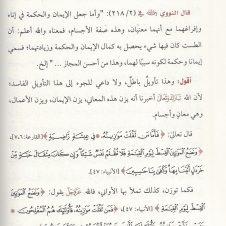 قال النووي رحمه الله في (٢١٨/٢): "وأما جعل الإيمان والحكمة في إناء
وإفراغهما مع أنهما معنيان، وهذه صفة الأجسام، فمعناه والله أعلم: أن
الطست كان فيها شيء يحصل به كمال الإيمان والحكمة وزيادتهما؛ فسمي
إيمانا وحكمة لكونه سببًا لهما، وهذا من أحسن المجاز ... " إلخ.
أقول: وهذا تأويل باطل، ولا داعي للجوء إلى هذا التأويل الفاسد؛
لأن الله تبارك وتعالى أخبرنا أنه يزن هذه المعاني، يزن الإيمان، ويزن الأعمال،
وهي معانٍ وأجسام.
قال تعالى: ﴿فَأَمَّا مَن ثَقُلَتْ مَوَازِينُهُ ۝ فَهُوَ فِي عِيشَةٍ رَّاضِيَةٍ﴾ [القارعة: ٦، ٧]،
﴿وَنَضَعُ الْمَوَازِينَ الْقِسْطَ لِيَوْمِ الْقِيَامَةِ فَلَا تُظْلَمُ نَفْسٌ شَيْئًا وَإِن كَانَ مِثْقَالَ حَبَّةٍ مِّنْ
خَرْدَلٍ أَتَيْنَا بِهَا وَكَفَى بِنَا حَاسِبِينَ﴾ [الأنبياء: ٤٧].
فكما توزن، كذلك تملأ بها الأواني، فالله عز وجل يقول: ﴿وَنَضَعُ الْمَوَازِينَ
الْقِسْطَ لِيَوْمِ الْقِيَامَةِ﴾ [الأنبياء: ٤٧]، ﴿فَمَن ثَقُلَتْ مَوَازِينُهُ فَأُولَئِكَ هُمُ الْمُفْلِحُونَ